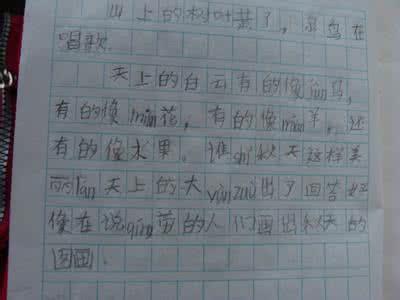 山上的树叶黄了，鸟在
唱歌.
天上的白云有的像鸟，
有的像mián花，有的像mián羊，还
有的像水果。谁shǐ秋天这样美
丽 天上的大 出了回答好
像在说qín劳的人们画出秋天的
图画.